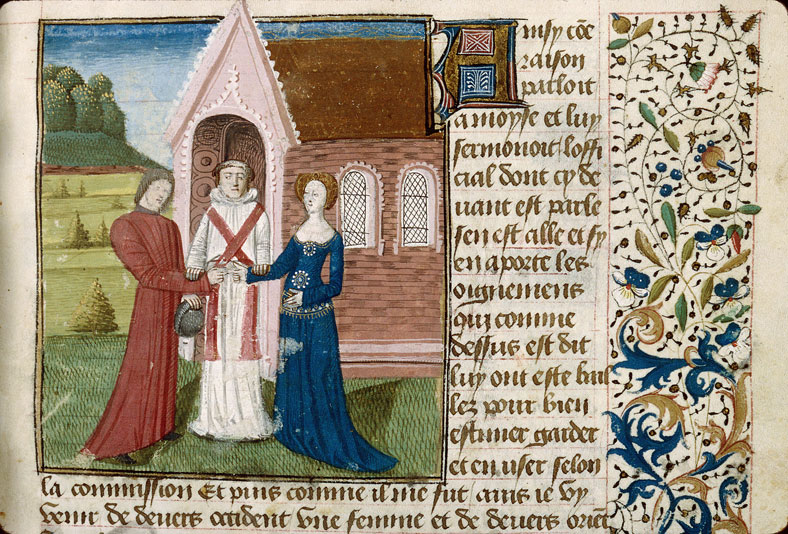 Ainsy cõe
raison
parloit
a moyse et luy
sermonoit loffi
cial dont cy de
uant est parle
sen est alle et sy
en aporte les
oignemens
qui comme
dessus est dit
luy ont este bail
lez pour bien
estimer garder
et en user selon
la commission Et puis comme il me fut auis ie vy
venir de deuers occident vne femme et de deuers orient